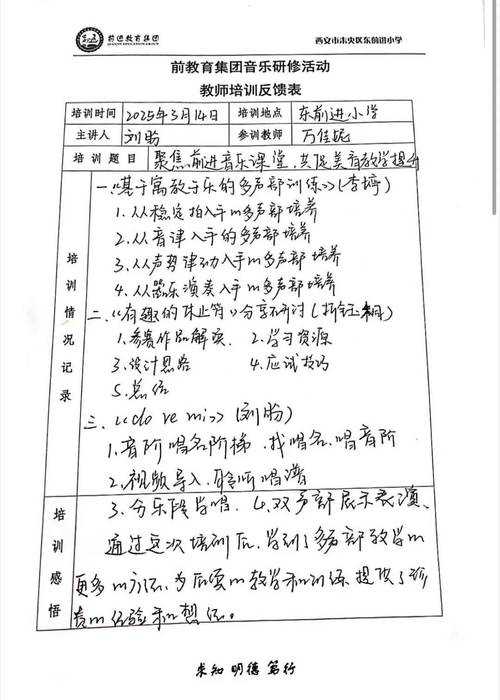 前进教育集团
西安市未央区东前进小学
前教育集团音乐研修活动
教师培训反馈表
培训时间 2025年3月14日 培训地点 东前进小学
主讲人 刘盼 参训教师 万佳妮
培训题目 聚焦前进音乐课堂,共促美育教学提升
培训情况记录
一、《基于寓教于乐的多声部训练》(李婷)
1.从稳定拍入手的多声部培养
2.从音律入手的多声部培养
3.从声势律动入手的多声部培养
4.从器乐演奏入手的多声部培养
二、《有趣的休止符》分享研讨(
1.参赛作品解读 2.学习资源
3.设计思路 4.应试技巧
5.总结
三、《do re mi》(刘盼)
1.音阶唱名阶梯、找唱名、唱音阶
2.视频导入、聆听唱谱
3.分乐段学唱、4.双声部展示表演、
培训感悟
通过这次培训后,学到了多声部教学的
更多的方法,为后项的教学和训练提供了珍
贵的经验和想法。
求知 明德 笃行